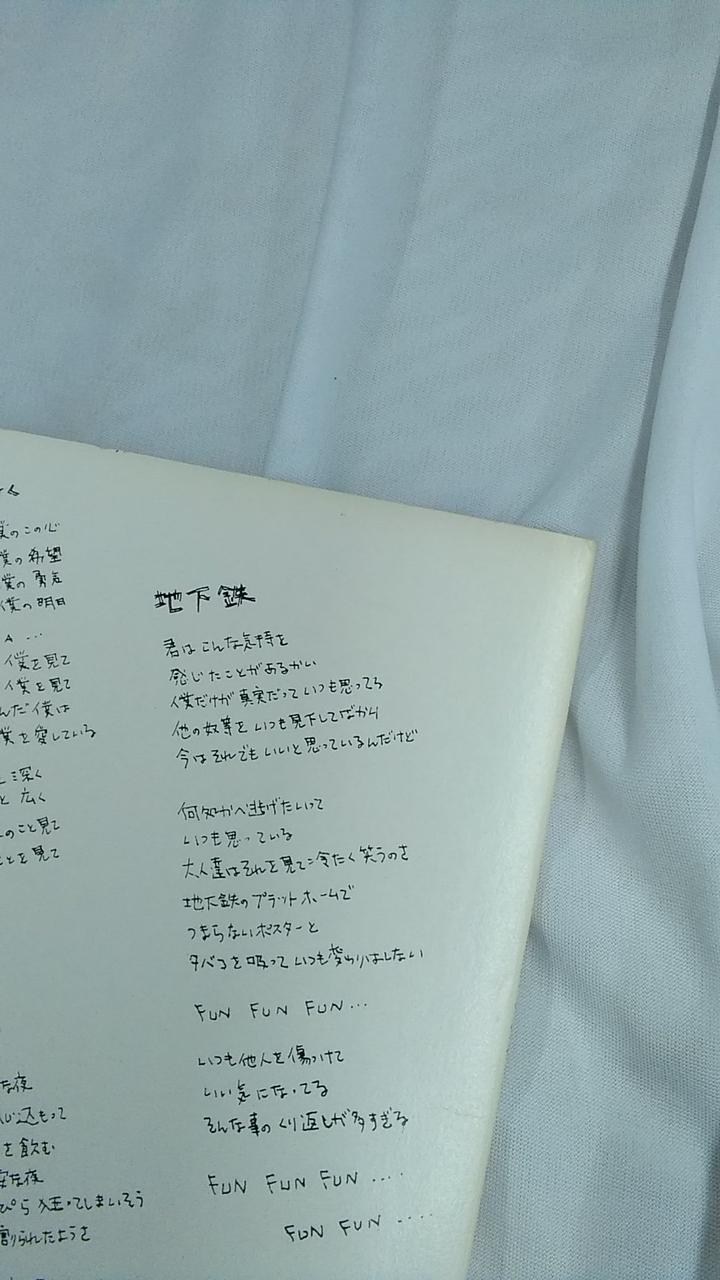 僕のこの心
僕の希望
僕の勇気
僕の明日
A ...
僕を見て
僕を見て
んだ僕は
僕を愛している
深く
と 広く
のこと見て
ことを見て
な夜
込もって
を飲む
な夜
ぴら狂ってしまいそう
割られたようさ
地下鉄
君はこんな気持を
感じたことがあるかい
僕だけが真実だっていつも思ってら
他の奴等をいつも見下してばかり
今はそれでもいいと思っているんだけど
何処かへ逃げたいって
いつも思っている
大人達はそれを見て冷たく笑うのさ
地下鉄のプラットホームで
つまらないポスターと
タバコを吸っていつも変わりはしない
FUN FUN FUN...
いつも他人を傷つけて
いい気になってる
そんな事のくり返しが多すぎる
FUN FUN FUN ....
FUN FUN ....